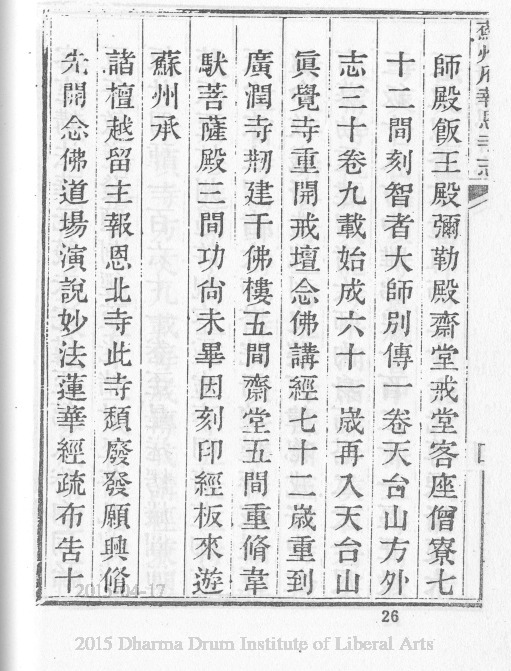 蘇州府報恩寺志
師殿飯王殿彌勒殿齋堂戒堂客座僧寮七
十二間刻智者大師別傳一卷天台山方外
志三十卷九載始成六十一歲再入天台山
眞覺寺重開戒壇念佛講經七十二歲重到
廣潤寺剏建千佛樓五間齋堂五間重脩韋
馱菩薩殿三間功尙未畢因刻印經板來遊
蘇州承
諸檀越留主報恩北寺此寺頹廢發願興脩
先開念佛道場演說妙法蓮華經疏布告十
26
2015-04-17
2015 Dharma Drum Institute of Liberal Arts